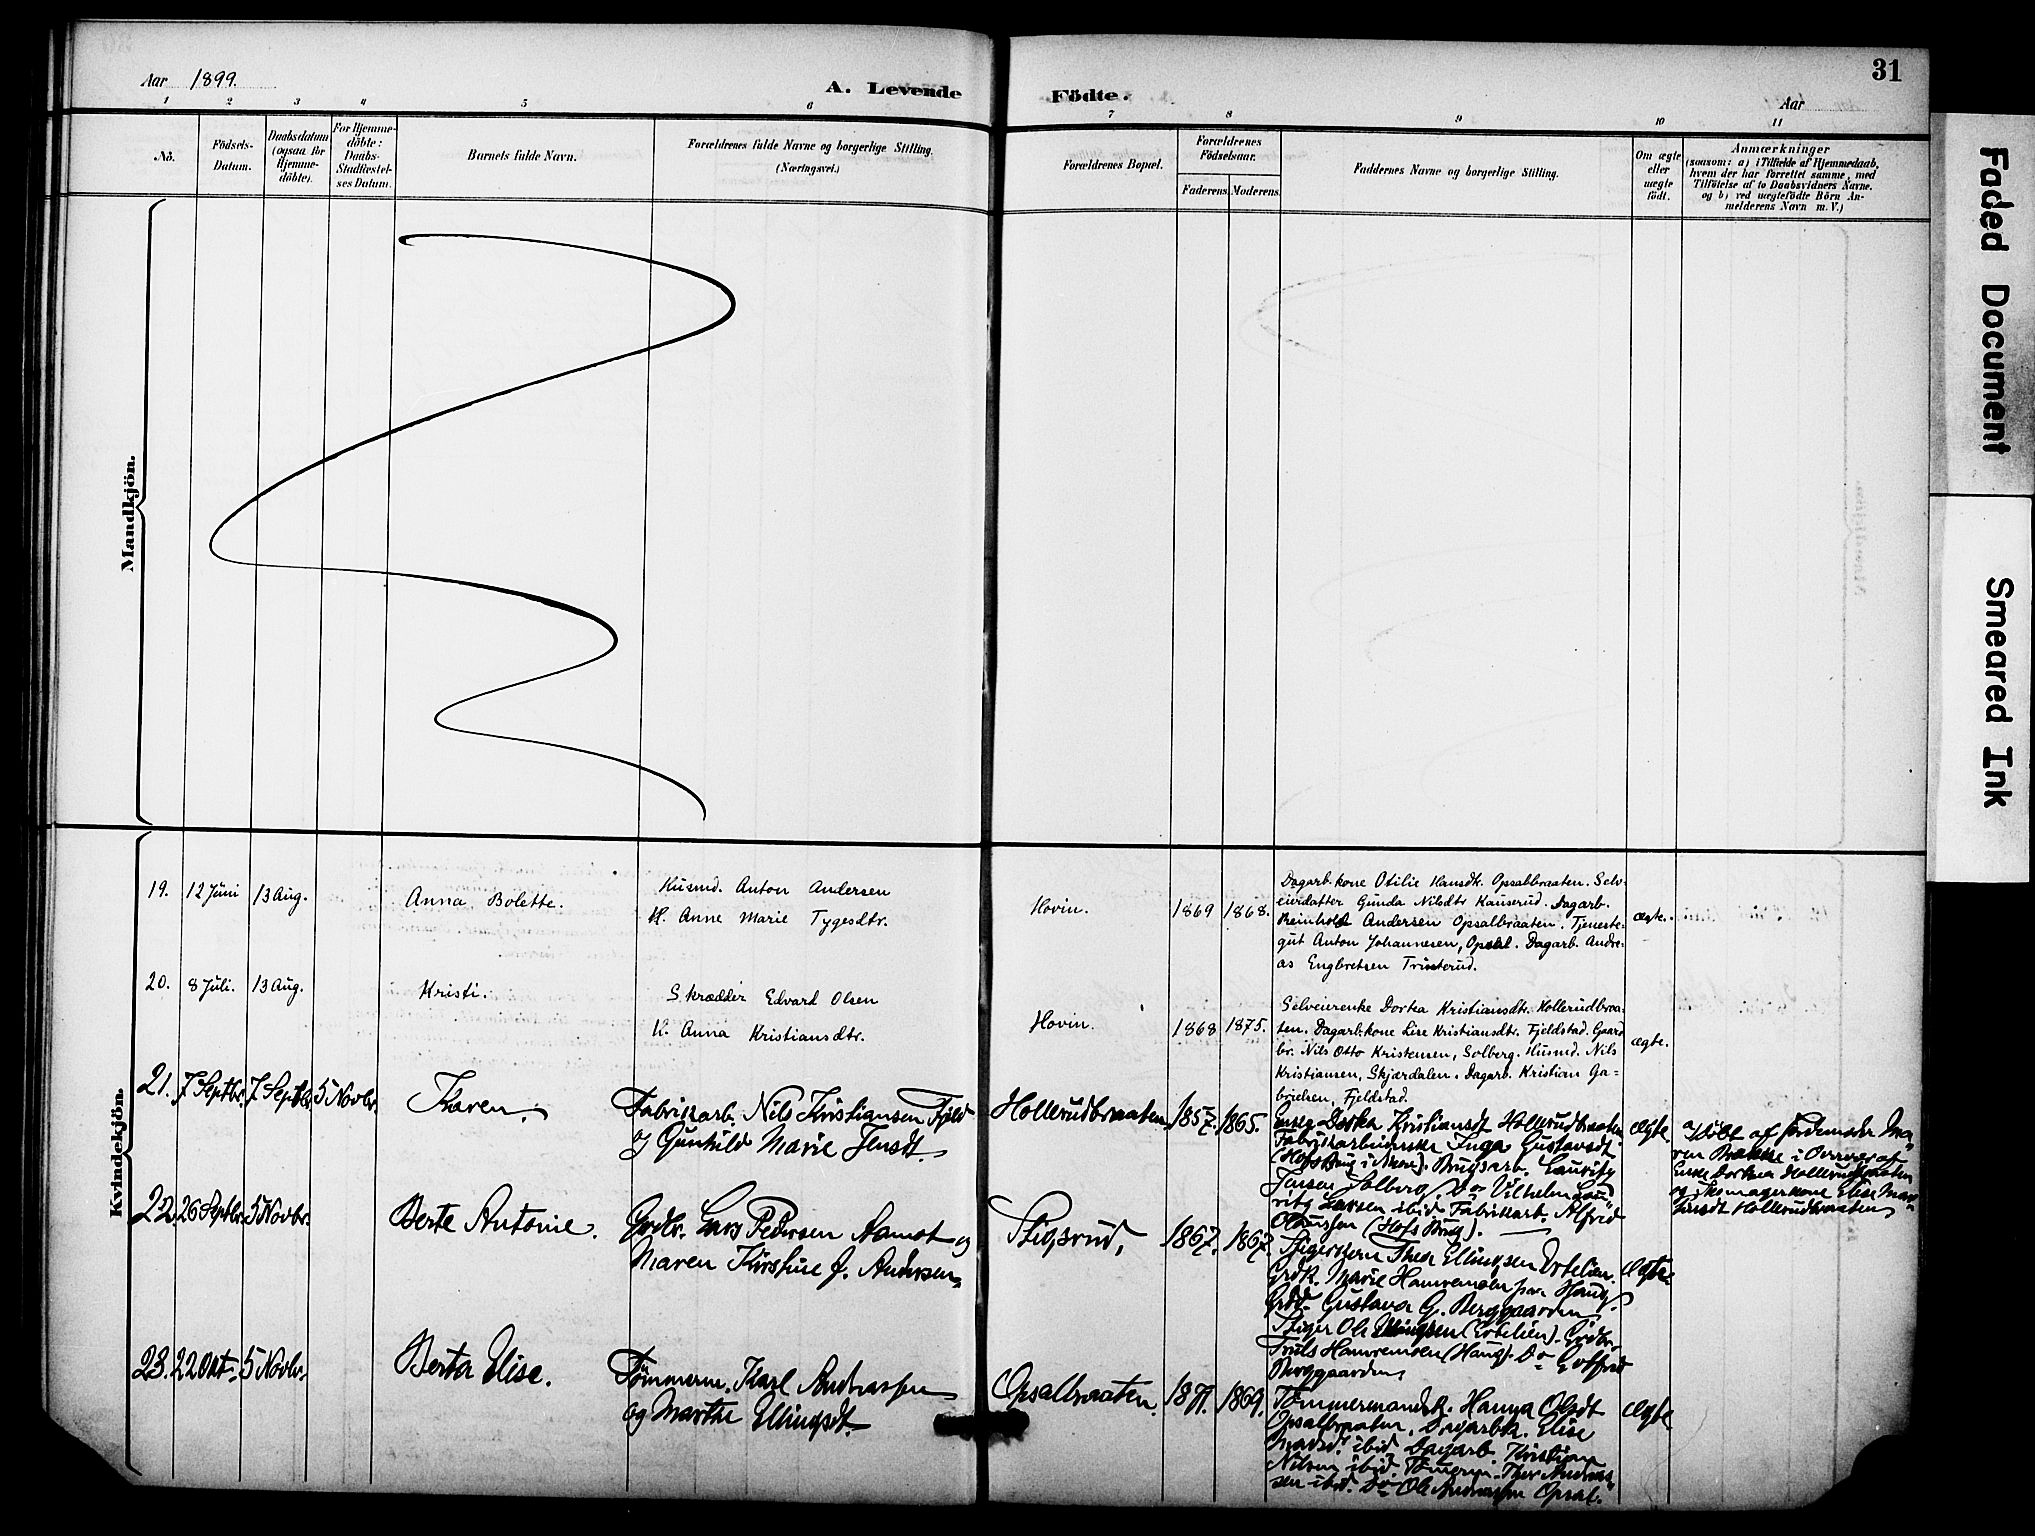 Aar 1899.
A. Levende Födte.
Aar
31
1 2 3 4 5 6 7 8 9 10 11
No.
Födsels-
Datum.
Daabsdatum
(ogsaa for
Hjemme-
döbte).
For Hjemme-
döbte:
Daabs-
Stadfæstel-
ses Datum.
Barnets fulde Navn.
Forældrenes fulde Navne og borgerlige Stilling.
(Næringsvei.)
Forældrenes Bopæl.
Forældrenes
Födselsaar.
Faderens.
Moderens.
Faddernes Navne og borgerlige Stilling.
Om ægte
eller
uægte
født.
Anmærkninger
(saasom: a) i Tilfælde af Hjemmedaab,
hvem der har forrettet samme, med
Tilføielse af to Daabsvidners Navne.
og b) ved uægtefødte Börn An-
melderens Navn m. V.)
Mandkjön.
Kvindekjön.
19. 12 Juni 13 Aug.
Anna Bolette.
Husmd. Anton Andersen
H. Anne Marie Tygesdtr.
Hovin.
1869 1868.
Dagarb.kone Otilie Hansdtr. Opsalbraaten. Selv-
eierdatter Gunda Nilsdtr Kauserud. Dagarb.
Reinholdt Andersen Opsalbraaten. Tjeneste-
gut Anton Johannesen, Opsal. Dagarb. Andre-
as Engbretsen Trusterud.
ægte.
20. 8 Juli. 13 Aug.
Kristi.
Skrædder Edvard Olsen
K. Anna Kristiansdtr.
Hovin.
1868 1875.
Selveierenke Dortea Kristiansdtr. Hollerudbraa-
ten. Dagarb.kone Lise Kristiansdtr. Fjeldstad. Gaard
br. Nils Otto Kristensen, Solberg. Husmd. Nils
Kristiansen, Skjærdalen. Dagarb. Kristian Ga-
brielsen, Fjeldstad.
ægte.
21. 7 Septbr. 7 Septbr. 5 Novbr.
Karen.
Fabrikarb. Nils Kristiansen Fjeld
og Gunhild Marie Jensdt.
Hollerudbraaten.
1857. 1865.
Enke Dorthea Kristiansdt Hollerudbraaten
Fabrikarbeiderske Inga Gustavsdt.
(Hofs Brug i Aadalen). Brugsarb. Lauritz
Jensen Solberg. Do Vilhelm Lau
ritz Larsen ibid Fabrikarb. Alfred
(Hofs Brug).
ægte.
Døbt af Jordemoder Ma-
ren Bakke i Overvær af
Enke Dorthea Hollerudbraaten
og Skomagerkone Elise
Hollerudbraaten
22. 26 Septbr. 5 Novbr.
Berte Antonie.
Grdbr. Lars Pedersen Aamot og
Maren Kirstine J. Andersen
Stigsrud,
1867. 1867.
Thea Ellingsen
Grdk. Marie
Gustava G. Berggaarden.
Stiger Ole Ellingsen. Grdbr.
Truls (Haug). Do Gotfred
Berggaarden
ægte.
23. 22 Okt. 5 Novbr.
Berta Elise.
Tømmerm. Karl Andreassen
og Marthe Ellingsdt.
Opsalbraaten.
1871. 1869.
Tømmermandsk. Hanna Olsdt
Opsalbraaten, Dagarbk. Elise
ibid. Dagarb. Kristian
Nilsen ibid. Tømerm. Thor Andreas-
sen ibid. Do Ole Andreassen Opsal.
ægte
Faded Document
Smeared Ink